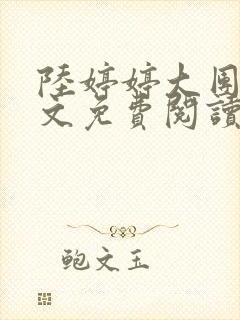 陸婷婷大周
文免費閱讀
鲍文玉